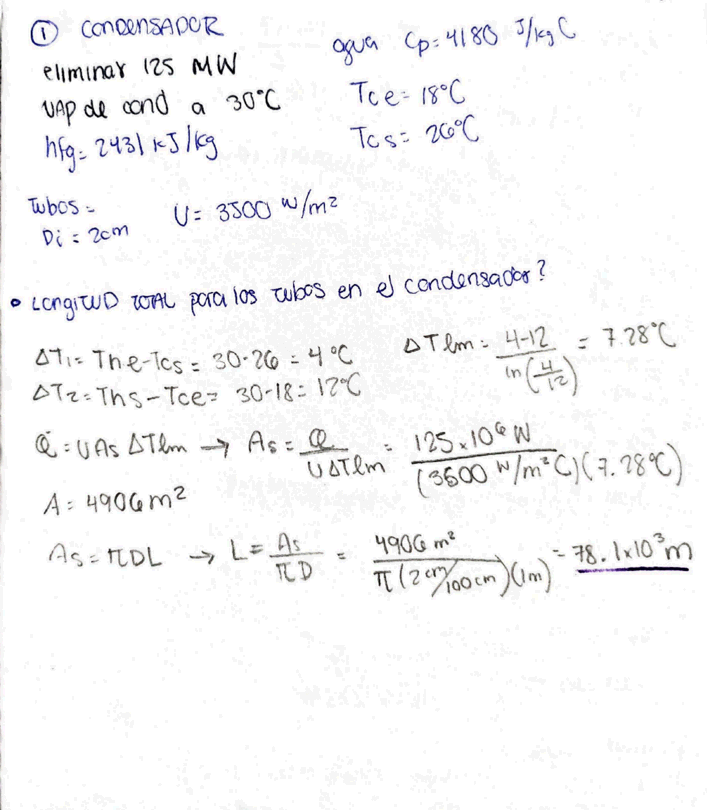 ① CONDENSADOR
eliminar 125 MW
VAP de cond a 30°C
hfg = 2431 kJ/kg
agua Cp = 4180 J/kg C
Tce = 18°C
Tcs = 26°C
Tubos =
Di = 2cm
U = 3500 W/m²
• LongiTUD TOTAL para los tubos en el condensador?
ΔT₁ = The - Tcs = 30 - 26 = 4 °C
ΔT₂ = Ths - Tce = 30 - 18 = 12°C
ΔTlm = 4-12 / ln(4/12) = 7.28°C
Q̇ = UAs ΔTlm → As = Q̇ / UΔTlm = 125 x 10⁶ W / (3500 W/m²C)(7.28°C)
A = 4906 m²
As = πDL → L = As / πD = 4906 m² / π(2cm/100cm)(1m) = 78.1x10³ m